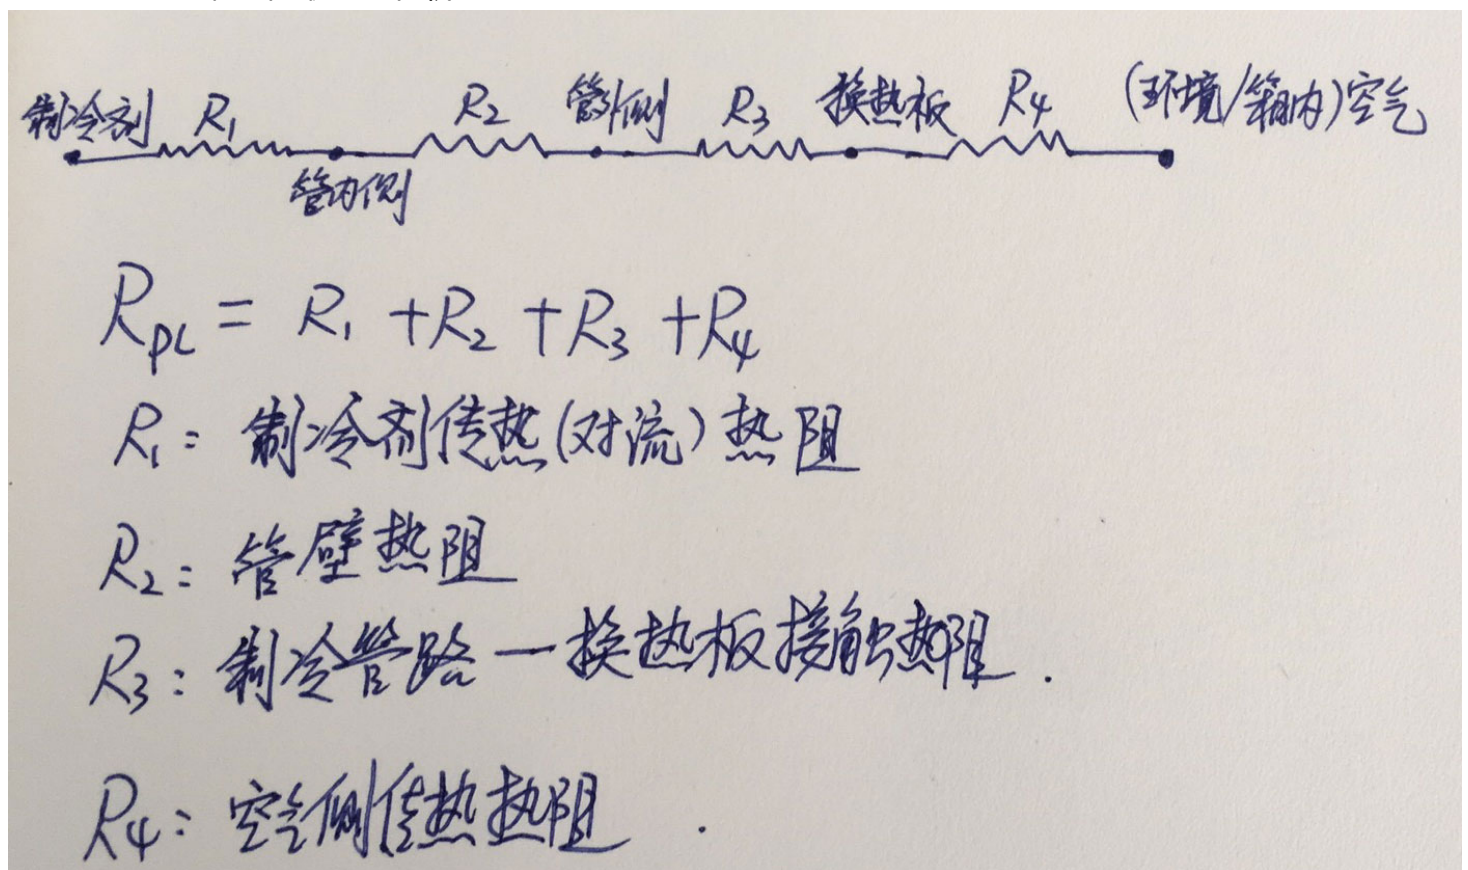 制冷剂 R₁ R₂ 管外侧 R₃ 换热板 R₄ (环境/箱内)空气
管内侧
R_PL = R₁ + R₂ + R₃ + R₄
R₁: 制冷剂传热(对流)热阻
R₂: 管壁热阻
R₃: 制冷管路一换热板接触热阻.
R₄: 空气侧传热热阻.